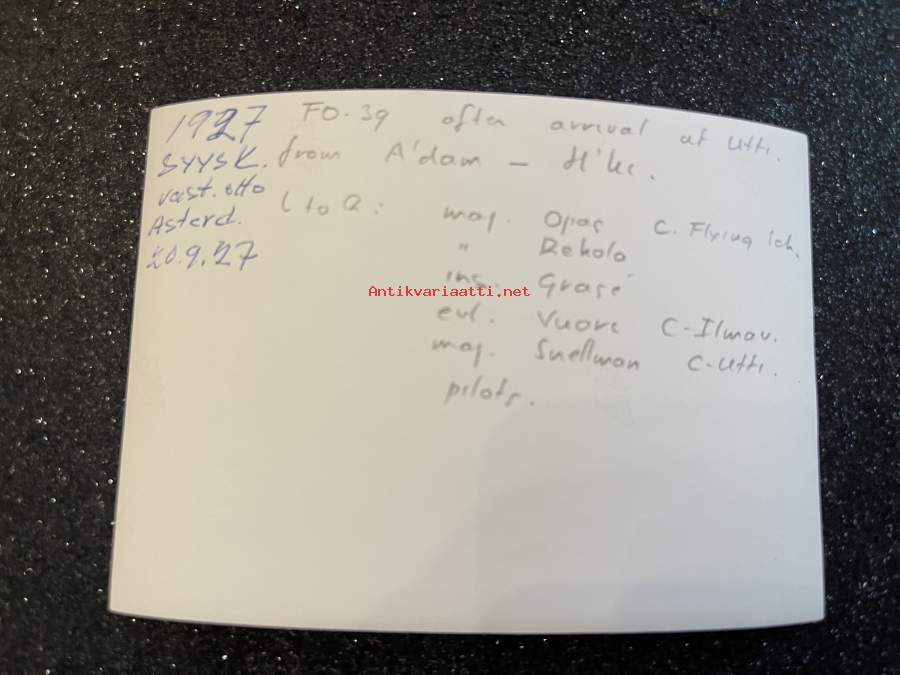 1927
SYYSK.
vast.otto
Asterd.
20.9.27
FO.39 after arrival at Utti.
from A'dam - H'ki.
L to R:
maj. Opas C. Flying sch.
" Rekola
ins. Grasé
evl. Vuori C-Ilmav.
maj. Snellman C-Utti.
pilots.
Antikvariaatti.net